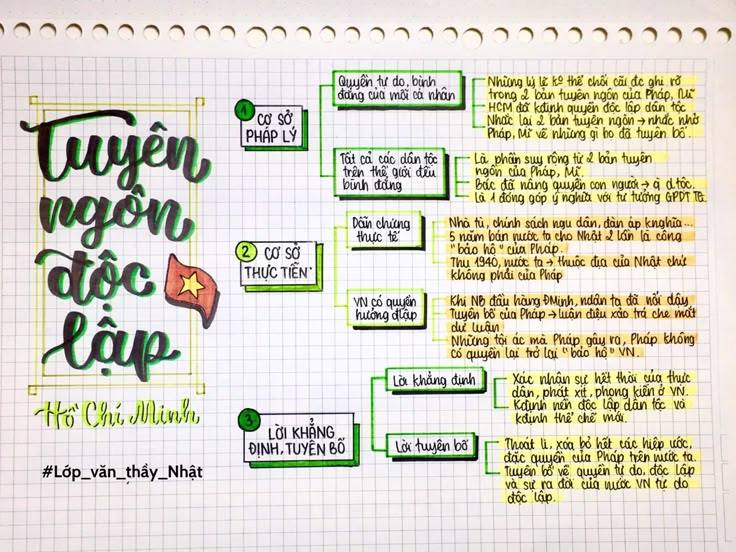 Tuyên
ngôn
độc
lập
Hồ Chí Minh
#Lớp_văn_thầy_Nhật
1
CƠ SỞ
PHÁP LÝ
Quyền tự do, bình
đẳng của mỗi cá nhân
Những lý lẽ ko thể chối cãi đc ghi rõ
trong 2 bản tuyên ngôn của Pháp, Mĩ
HCM đã kđịnh quyền độc lập dân tộc
Nhắc lại 2 bản tuyên ngôn → nhắc nhở
Pháp, Mĩ về những gì họ đã tuyên bố.
Tất cả các dân tộc
trên thế giới đều
bình đẳng
Là phần suy rộng từ 2 bản tuyên
ngôn của Pháp, Mĩ.
Bác đã nâng quyền con người → q d.tộc.
là 1 đóng góp ý nghĩa với tư tưởng GPDT TG.
2
CƠ SỞ
THỰC TIỄN
Dẫn chứng
thực tế
Nhà tù, chính sách ngu dân, đàn áp knghĩa...
5 năm bán nước ta cho Nhật 2 lần là công
"bảo hộ" của Pháp.
Thu 1940, nước ta → thuộc địa của Nhật chứ
không phải của Pháp
VN có quyền
hưởng đlập
Khi NB đầu hàng ĐMinh, ndân ta đã nổi dậy
Tuyên bố của Pháp → luận điệu xảo trá che mắt
dư luận
Những tội ác mà Pháp gây ra, Pháp không
có quyền lại trở lại "bảo hộ" VN.
3
LỜI KHẲNG
ĐỊNH, TUYÊN BỐ
Lời khẳng định
Xác nhận sự hết thời của thực
dân, phát xít, phong kiến ở VN.
Kđịnh nền độc lập dân tộc và
kđịnh thể chế mới.
Lời tuyên bố
Thoát li, xoá bỏ hết các hiệp ước,
đặc quyền của Pháp trên nước ta.
Tuyên bố về quyền tự do, độc lập
và sự ra đời của nước VN tự do
độc lập.